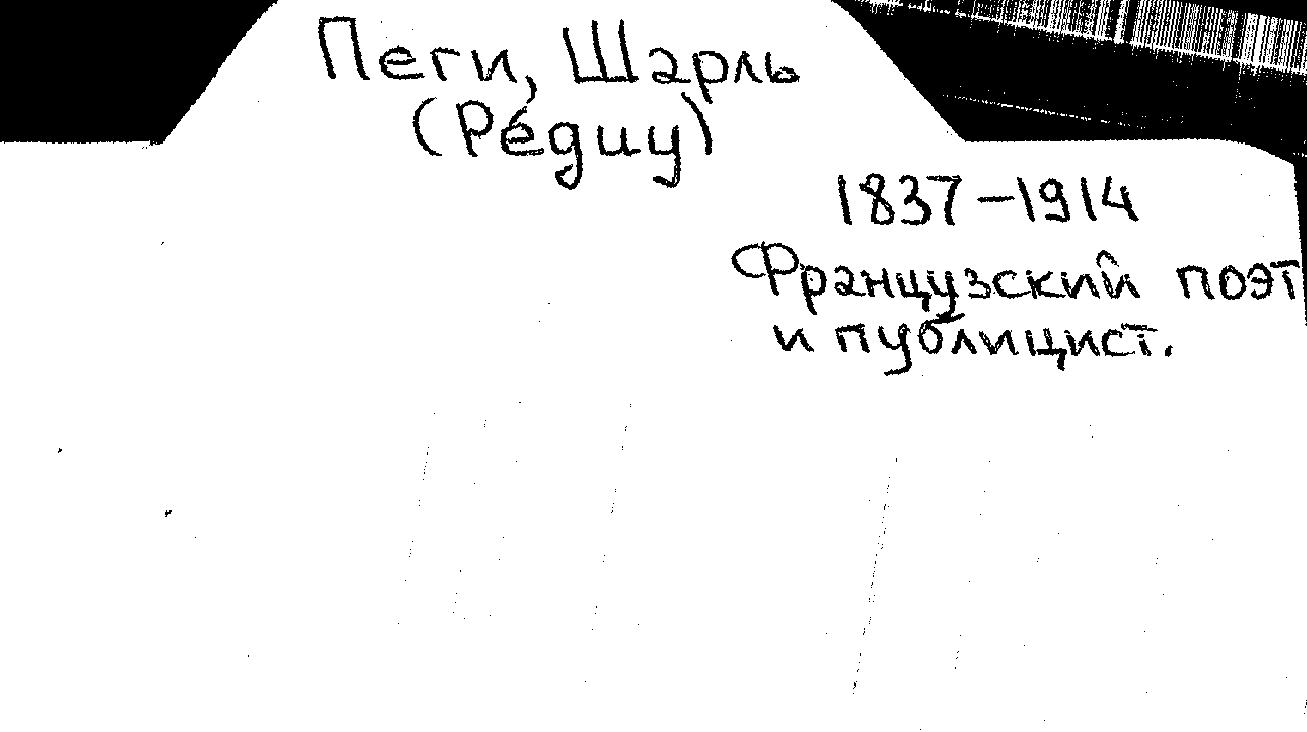 Пеги, Шарль
(Péguy)
1837-1914
Французский поэт
и публицист.